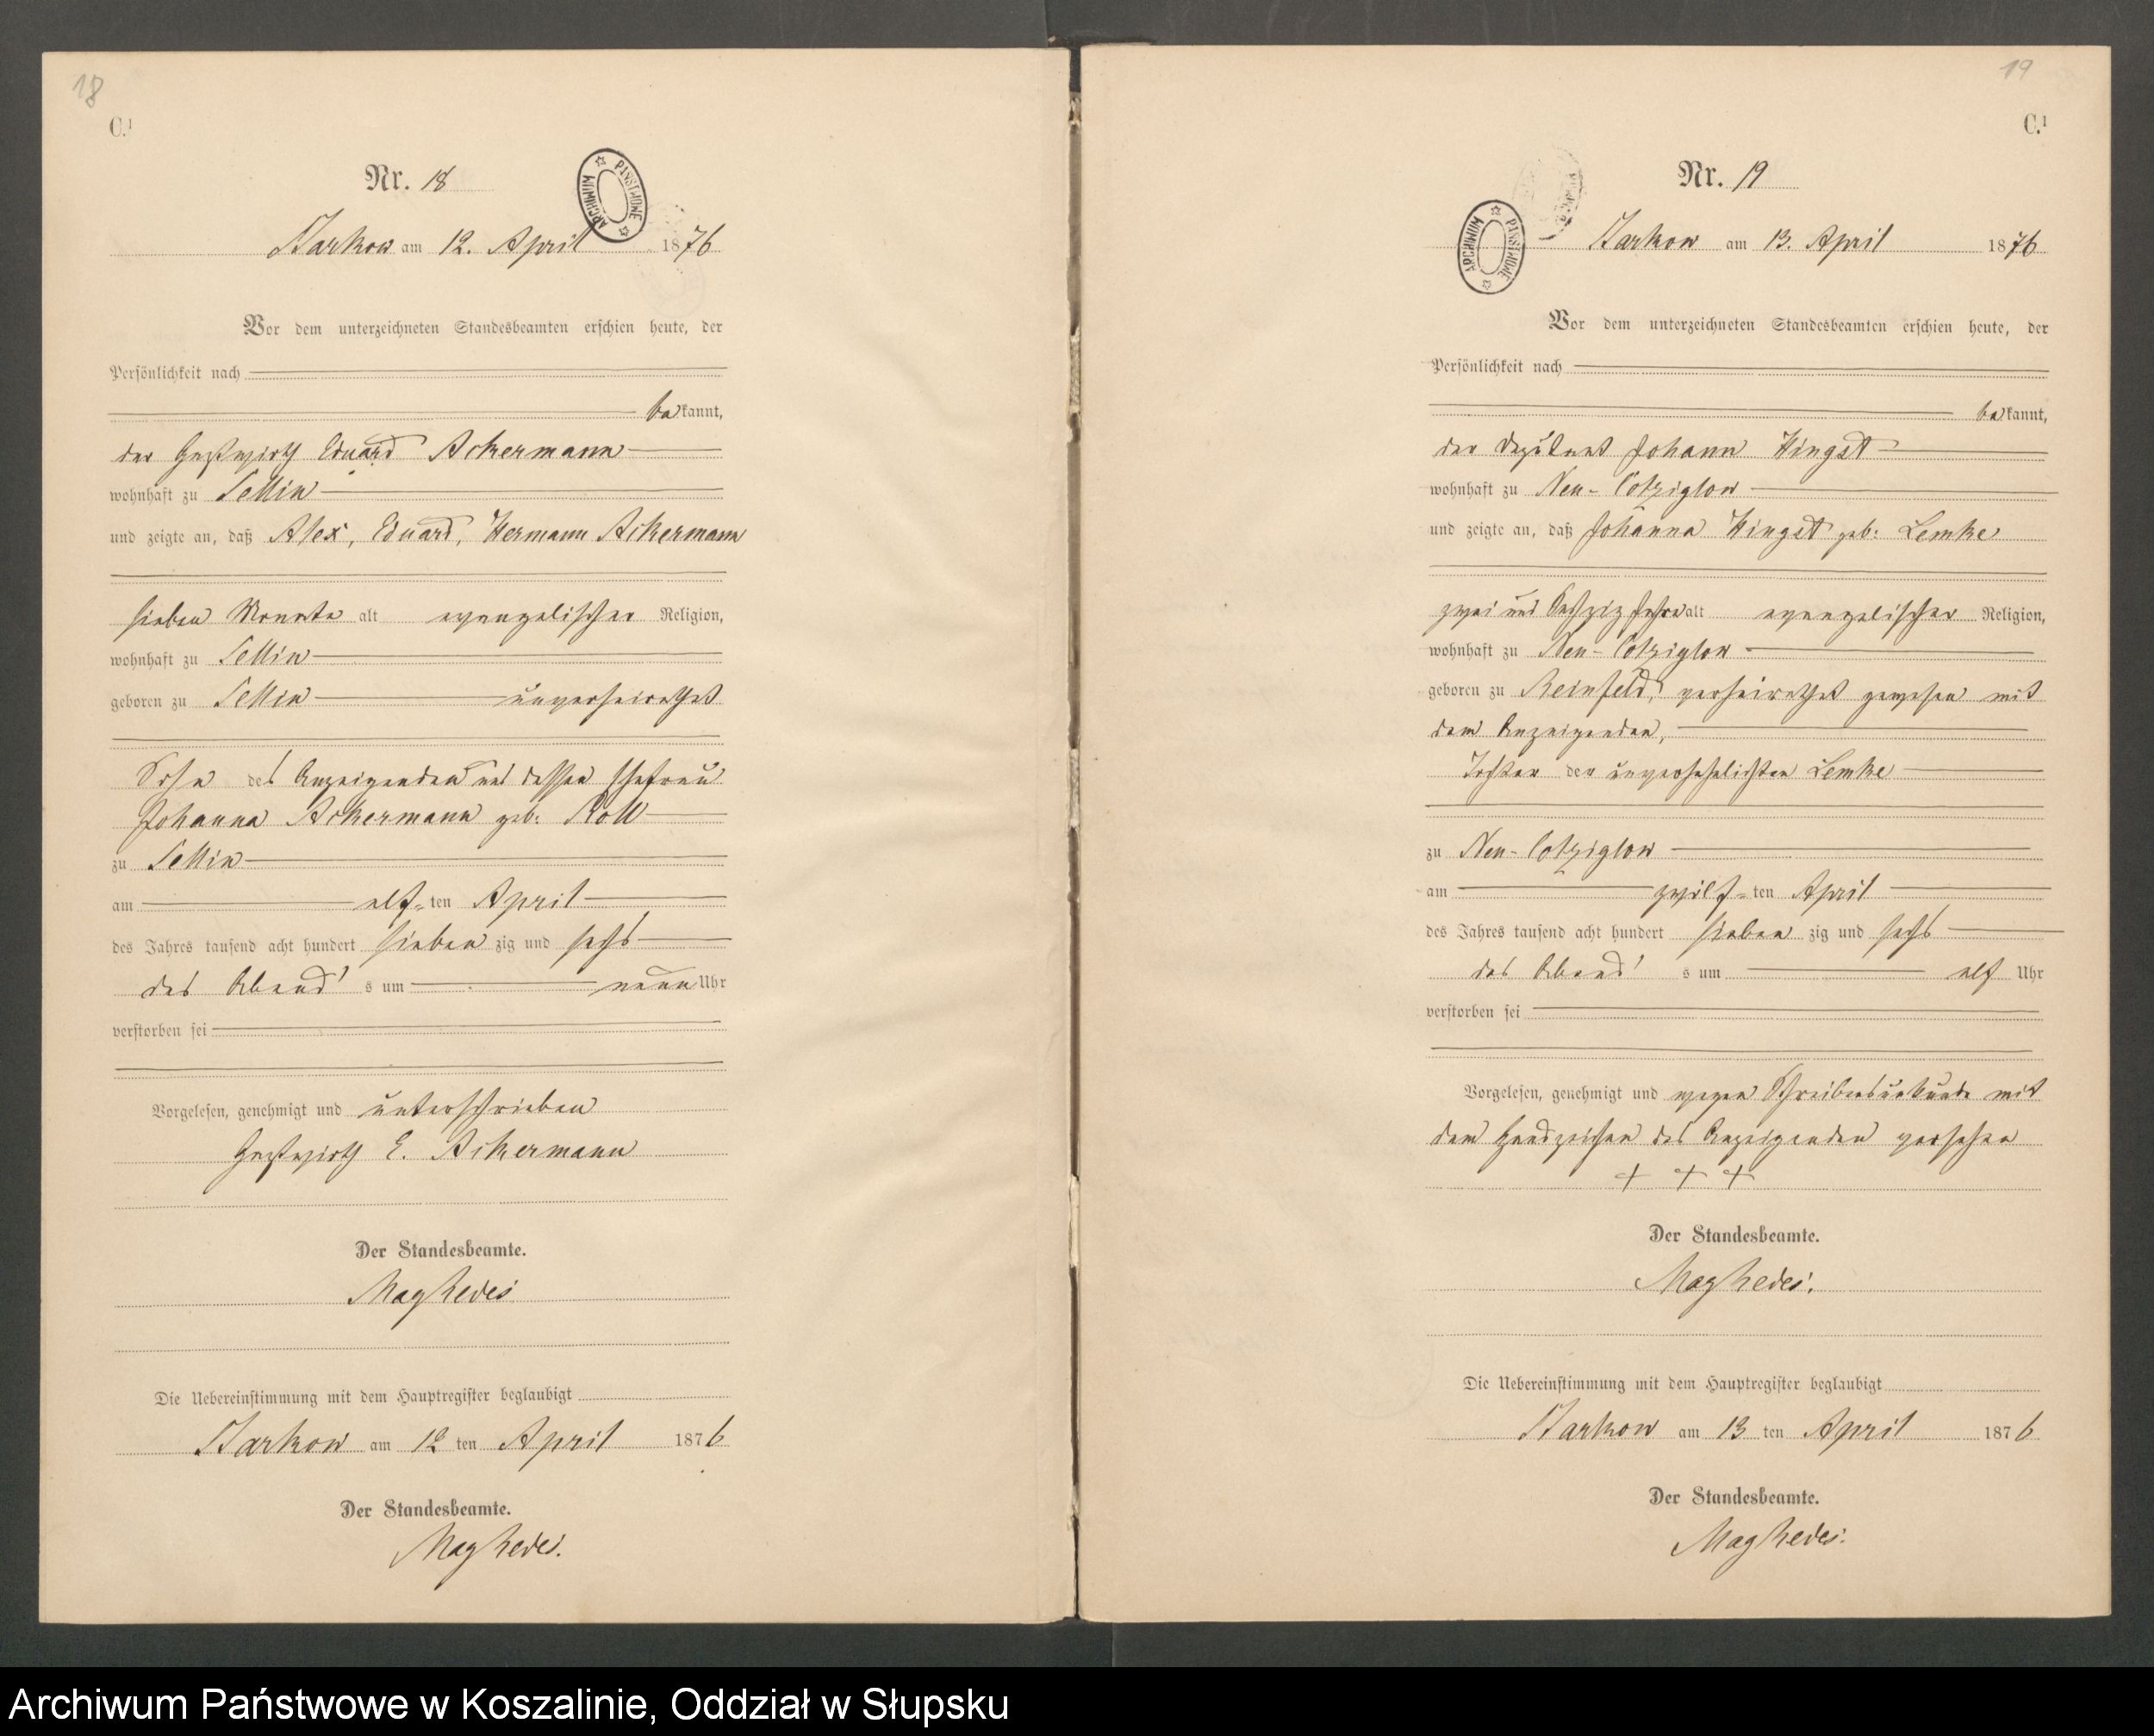 18
C.¹
Nr. 18
ARCHIWUM PAŃSTWOWE
Starkow am 12. April 1876
Vor dem unterzeichneten Standesbeamten erschien heute, der
Persönlichkeit nach
bekannt,
der Gastwirth Eduard Ackermann
wohnhaft zu Sellin
und zeigte an, daß Alex, Eduard, Hermann Ackermann
sieben Monate alt evangelischer Religion,
wohnhaft zu Sellin
geboren zu Sellin unverheirathet
Sohn des Anzeigenden und dessen Ehefrau
Johanna Ackermann geb: Roll
zu Sellin
am elf-ten April
des Jahres tausend acht hundert sieben zig und sechs
des Abend's um neun Uhr
verstorben sei
Vorgelesen, genehmigt und unterschrieben
Gastwirth E. Ackermann
Der Standesbeamte.
Die Uebereinstimmung mit dem Hauptregister beglaubigt
Starkow am 12 ten April 1876
Der Standesbeamte.
19
C.¹
Nr. 19
ARCHIWUM PAŃSTWOWE
Starkow am 13. April 1876
Vor dem unterzeichneten Standesbeamten erschien heute, der
Persönlichkeit nach
bekannt,
der Deputant Johann Hingst
wohnhaft zu Neu-Cotziglow
und zeigte an, daß Johanna Hingst geb: Lemke
zwei und sechzig Jahre alt evangelischer Religion,
wohnhaft zu Neu-Cotziglow
geboren zu Reinfeld, verheirathet gewesen mit
dem Anzeigenden,
Tochter der unverehelichten Lemke
zu Neu-Cotziglow
am zwölf-ten April
des Jahres tausend acht hundert sieben zig und sechs
des Abend's um elf Uhr
verstorben sei
Vorgelesen, genehmigt und wegen Schreibensunkunde mit
dem Handzeichen des Anzeigenden versehen
+ + +
Der Standesbeamte.
Die Uebereinstimmung mit dem Hauptregister beglaubigt
Starkow am 13 ten April 1876
Der Standesbeamte.
Archiwum Państwowe w Koszalinie, Oddział w Słupsku